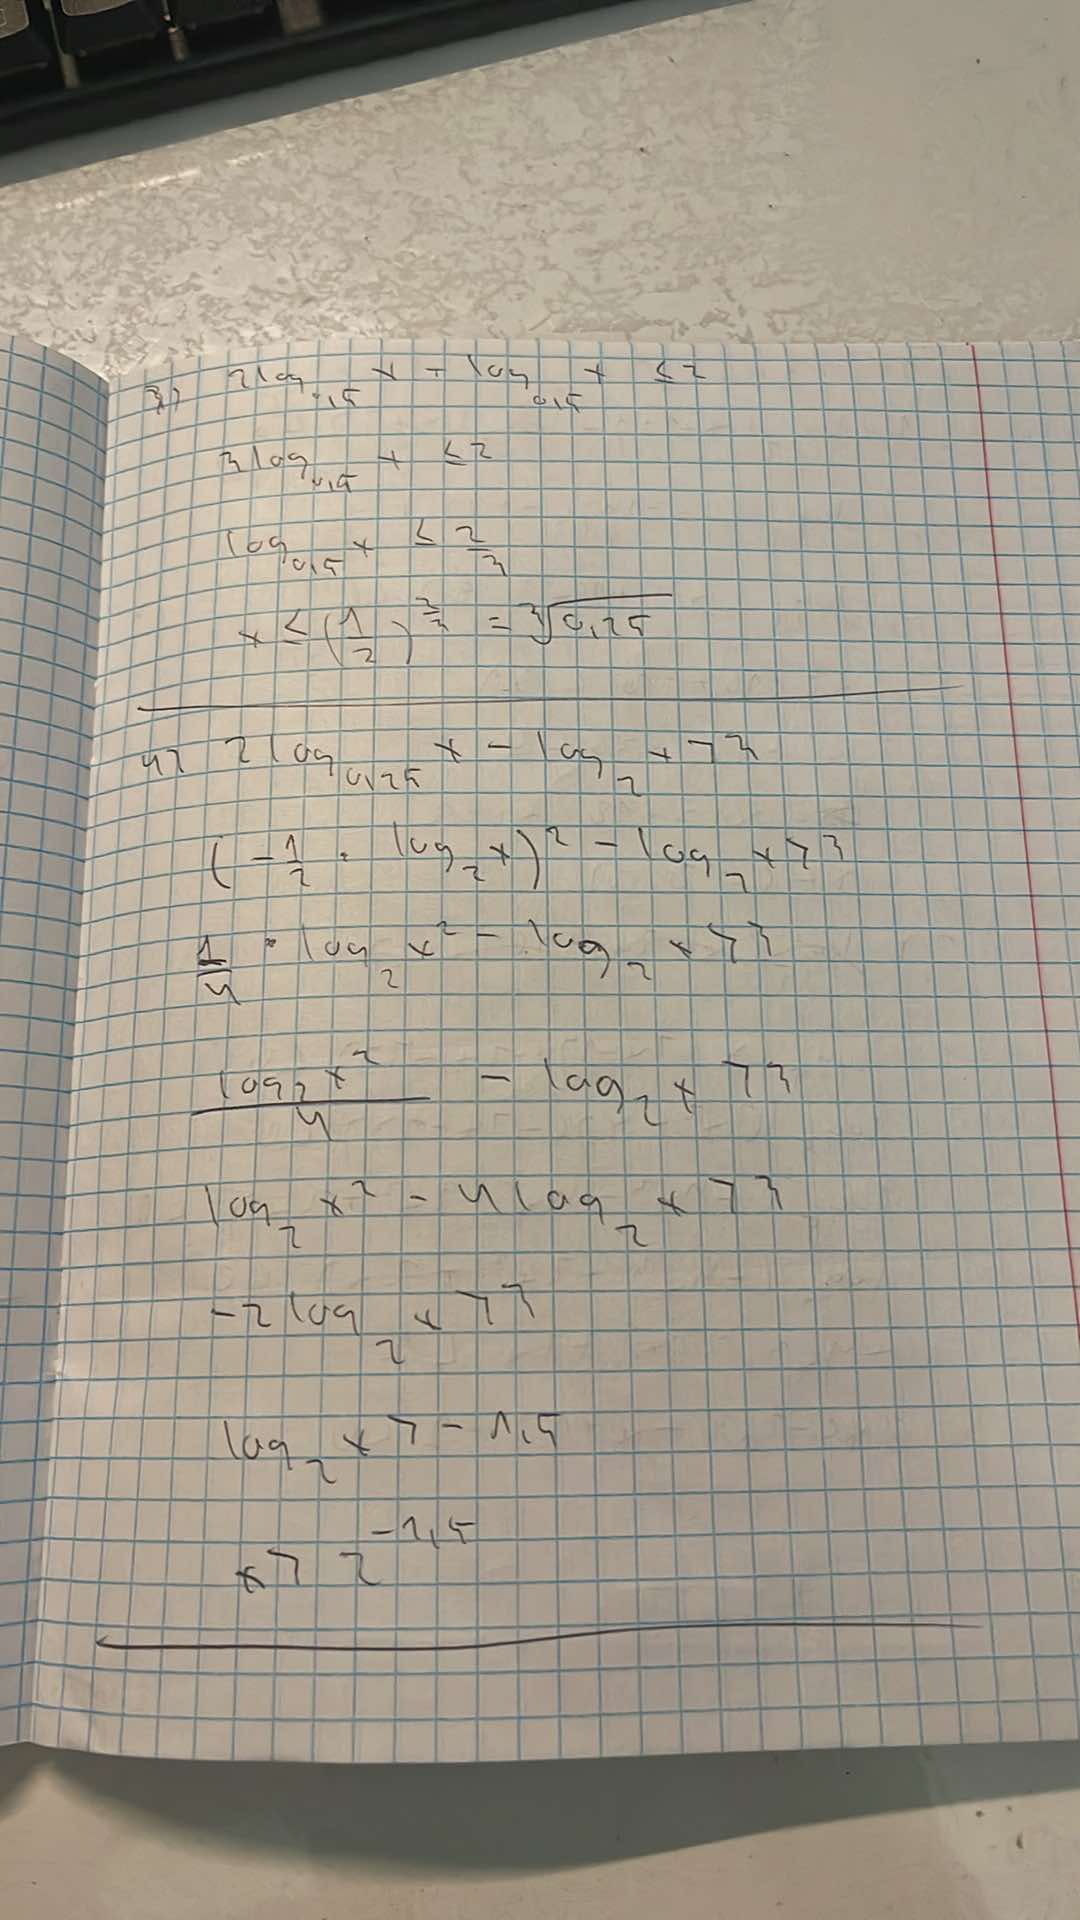 3) 2log₀,₅ x + log₀,₅ x ≤ 2
3log₀,₅ x ≤ 2
log₀,₅ x ≤ 2/3
x ≤ (1/2)^(2/3) = ∛0,25
4) 2log₀,₂₅ x - log₂ x > 3
(-1/2 · log₂ x)² - log₂ x > 3
1/4 · log₂ x² - log₂ x > 3
log₂ x² / 4 - log₂ x > 3
log₂ x² - 4log₂ x > 3
-2log₂ x > 3
log₂ x > -1,5
x > 2^(-1,5)